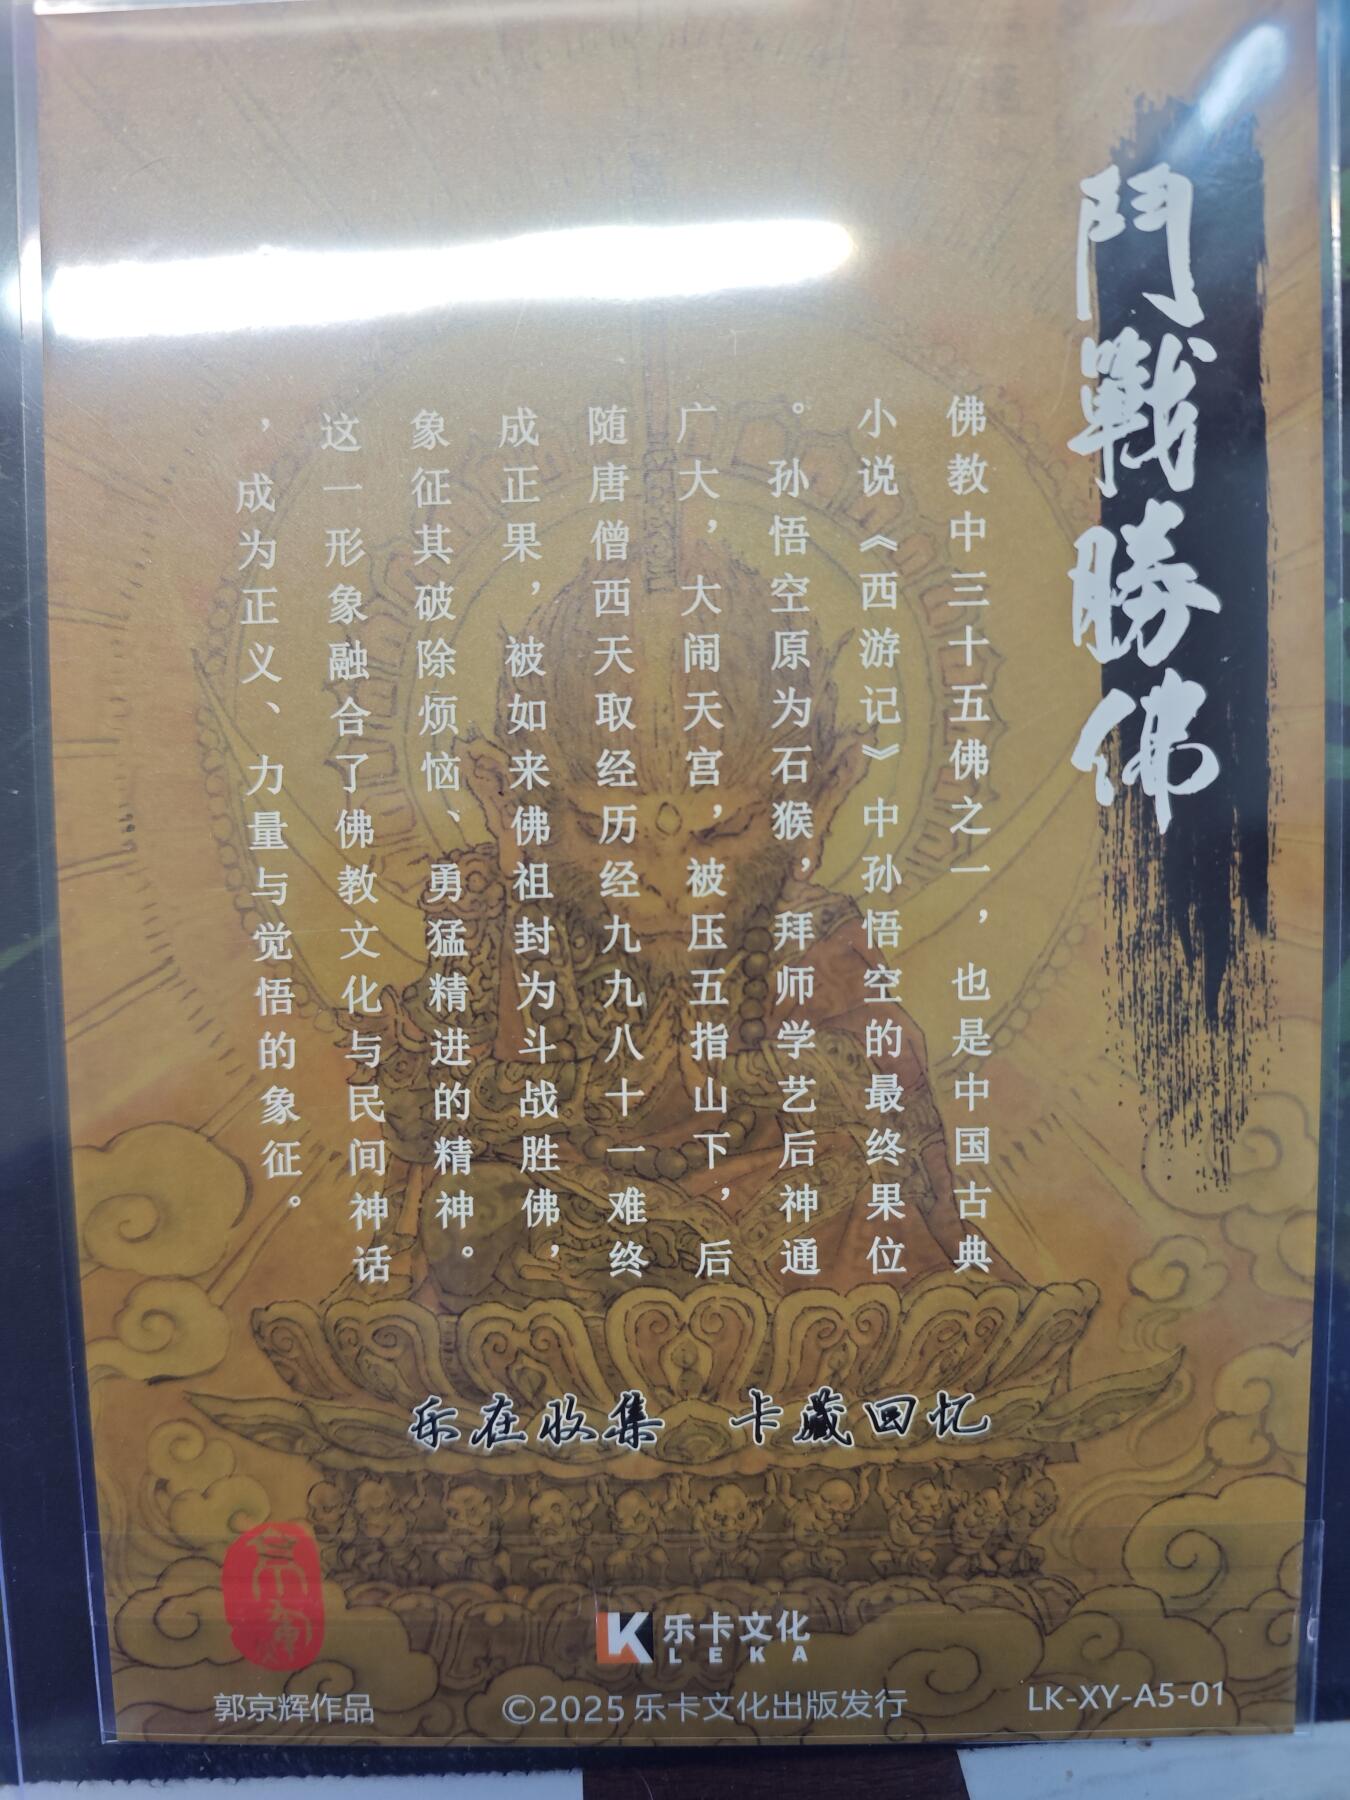 鬥戰勝佛
佛教中三十五佛之一，也是中国古典
小说《西游记》中孙悟空的最终果位
。孙悟空原为石猴，拜师学艺后神通
广大，大闹天宫，被压五指山下，后
随唐僧西天取经历经九九八十一难终
成正果，被如来佛祖封为斗战胜佛，
象征其破除烦恼、勇猛精进的精神。
这一形象融合了佛教文化与民间神话
，成为正义、力量与觉悟的象征。
乐在收集 卡藏回忆
乐卡文化
LEKA
郭京辉作品
©2025乐卡文化出版发行
LK-XY-A5-01